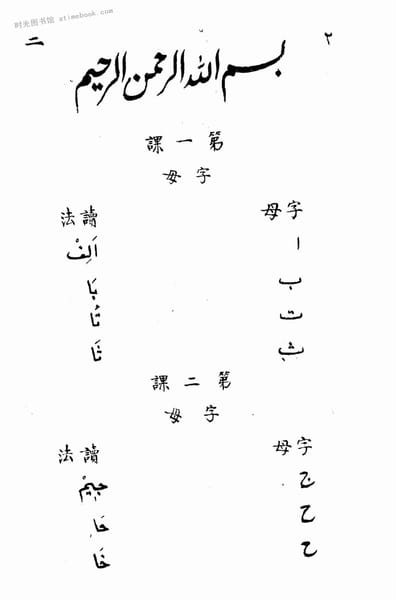 时光图书馆 atimebook.com
٢ 二
بسم الله الرحمن الرحيم
第一課
字母
字母 讀法
ا اَلِفْ
ب بَا
ت تَا
ث ثَا
第二課
字母
字母 讀法
ج جِيْمْ
ح حَا
ح خَا